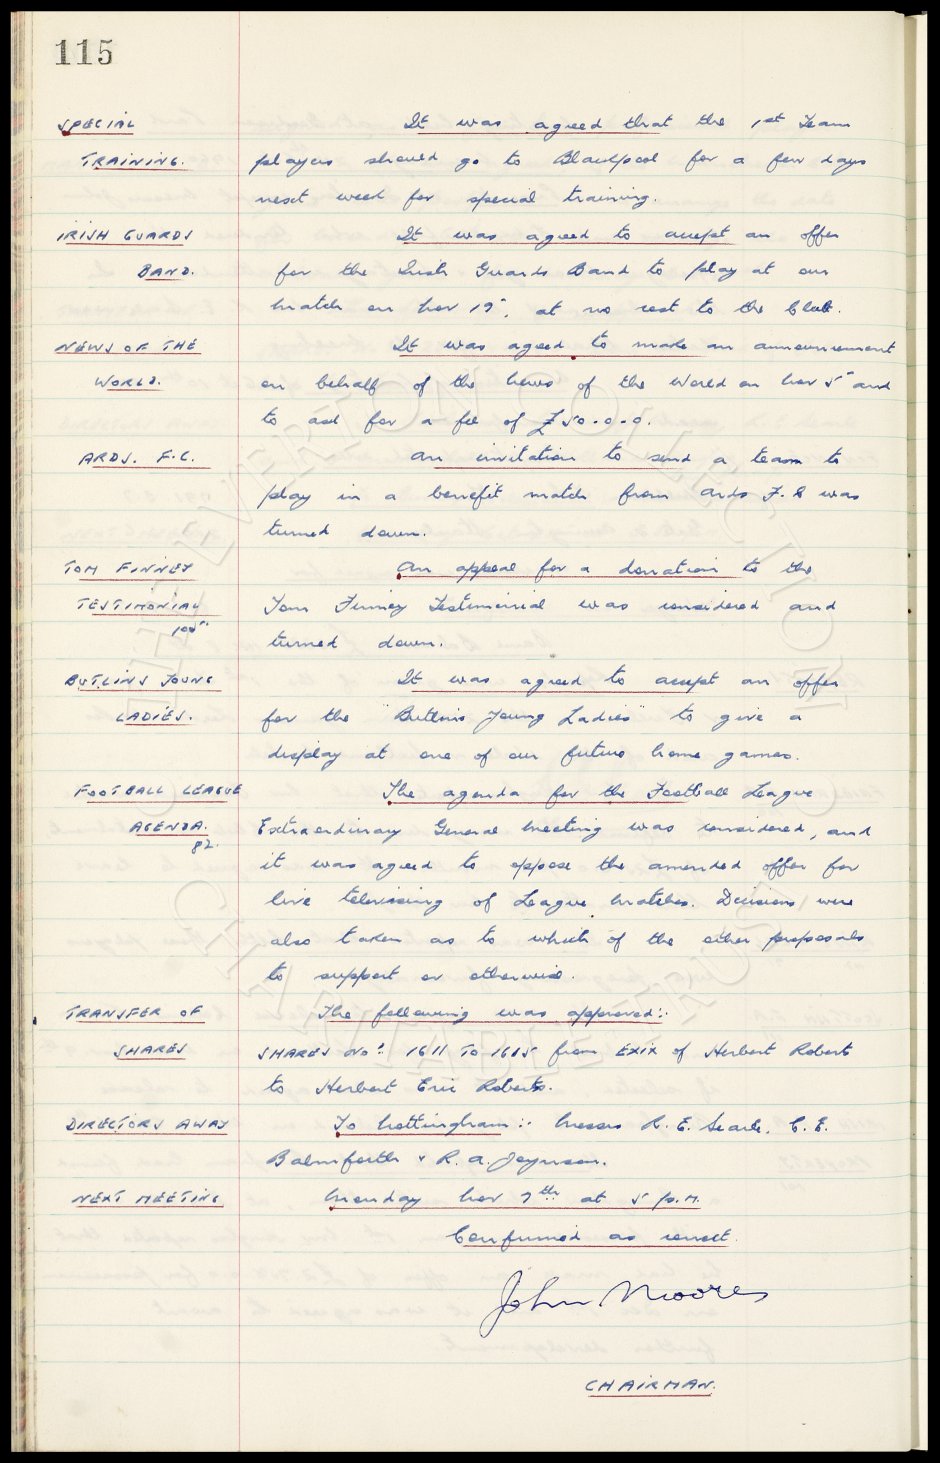 115
SPECIAL It was agreed that the 1st Team
TRAINING. players should go to Blackpool for a few days
next week for special training.
IRISH GUARDS It was agreed to accept an offer
BAND. for the Irish Guards Band to play at our
match on Nov 19th, at no cost to the Club.
NEWS OF THE It was agreed to make an announcement
WORLD. on behalf of the News of the World on Nov 5th and
to ask for a fee of £50.0.0.
ARDS. F.C. An invitation to send a team to
play in a benefit match from Ards F.C was
turned down.
TOM FINNEY An appeal for a donation to the
TESTIMONIAL Tom Finney Testimonial was considered and
105 turned down.
BUTLINS YOUNG It was agreed to accept an offer
LADIES. for the "Butlins Young Ladies" to give a
display at one of our future home games.
FOOTBALL LEAGUE The agenda for the Football League
AGENDA. Extraordinary General Meeting was considered, and
82. it was agreed to oppose the amended offer for
live televising of League Matches. Decisions were
also taken as to which of the other proposals
to support or otherwise.
TRANSFER OF The following was approved:-
SHARES SHARES Nos. 1611 TO 1615 from EXIX of Herbert Roberts
to Herbert Eric Roberts.
DIRECTORS AWAY To Nottingham:- Messrs R. E. Searle, C. E.
Balmforth & R. A. Joynson.
NEXT MEETING Monday Nov 7th at 5 p.m.
Confirmed as correct.
John Moores
CHAIRMAN.